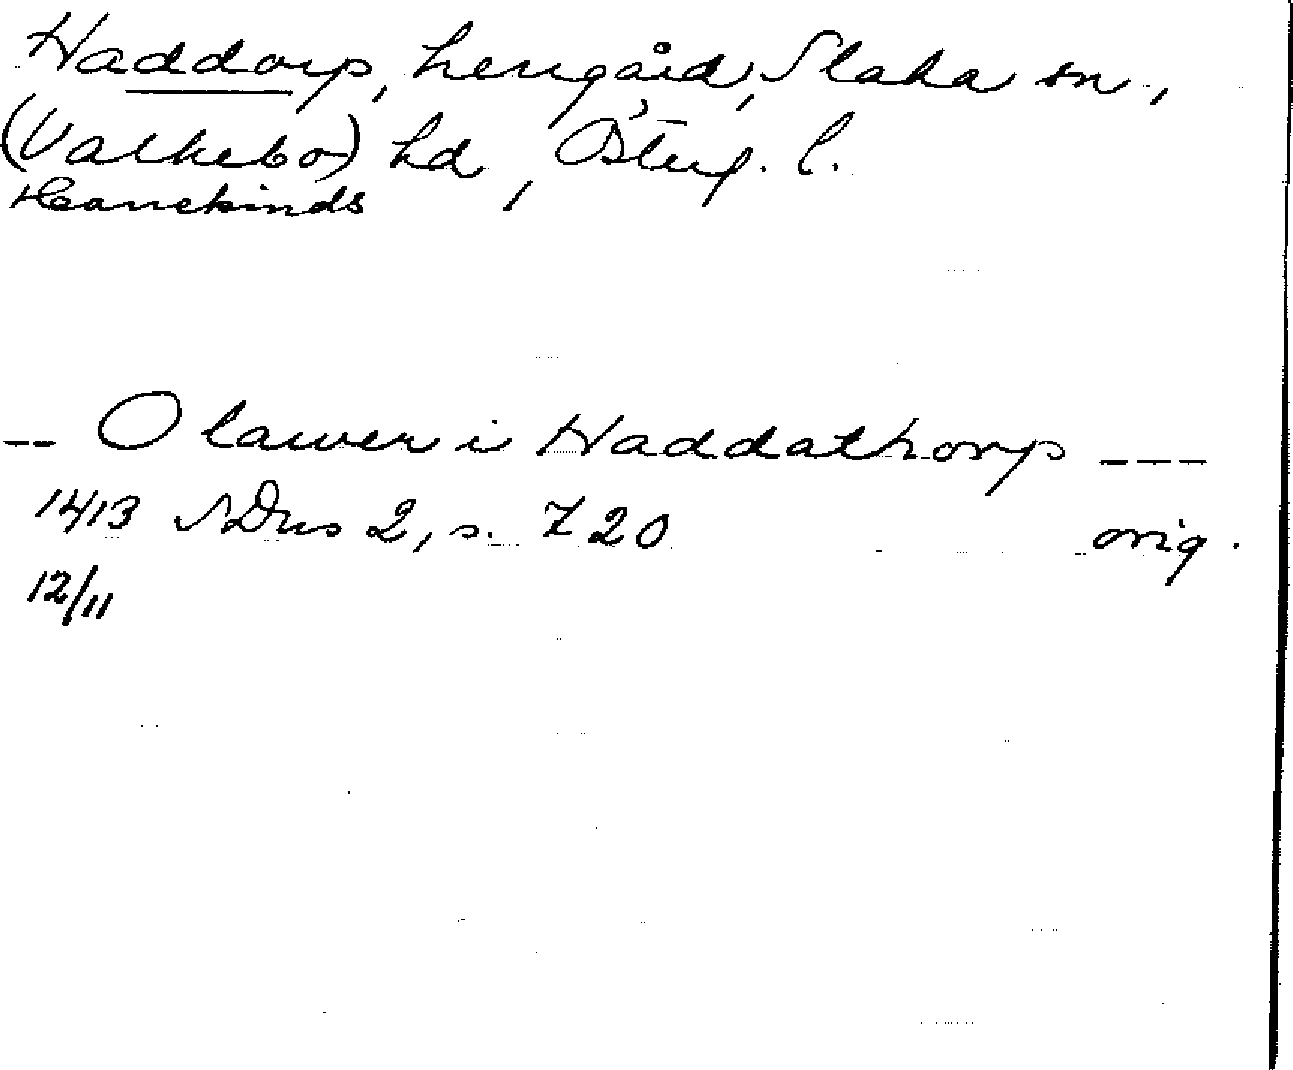 Haddorp, herrgård, Slaka sn,
(Valkebo) hd, Österg. l.
Hanekinds
-- Olawer i Haddathorp ---
1413 SDns 2, s. 720 orig.
12/11